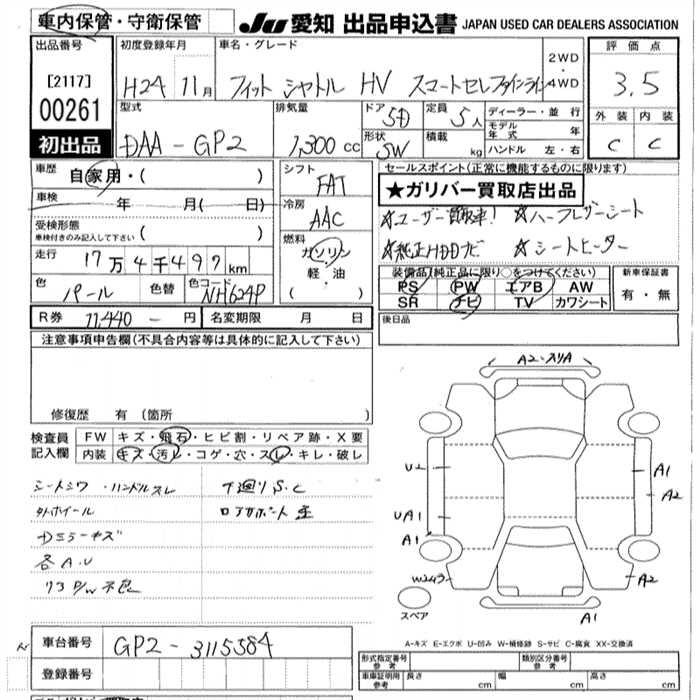 車内保管・守衛保管
JU 愛知 出品申込書 JAPAN USED CAR DEALERS ASSOCIATION
出品番号 [2117] 00261 初出品
初度登録年月 H24 11月
車名・グレード フィット シャトル HV スマートセレファインライン
2WD・4WD
評価点 3.5
外装 C 内装 C
型式 DAA-GP2
排気量 1,300 cc
ドア 5D
形状 SW
定員 5人
積載 kg
ディーラー・並行
モデル年式 年
ハンドル 左・右
車歴 自家用・( )
車検 年 月( 日)
受検形態 車検付きのみ記入して下さい ( )
走行 17万4千497km
色 パール 色替 色コード NH624P
シフト FAT
冷房 AAC
燃料 ガソリン 軽・油 ( )
R券 11,440-円 名変期限 月 日
セールスポイント(正常に機能するものに限ります)
★ガリバー買取店出品
☆ユーザー買取車! ☆ハーフレザーシート
☆純正HDDナビ ☆シートヒーター
装備品(純正品に限り○をつけてください)
PS PW エアB AW
SR ナビ TV カワシート
新車保証書 有・無
後日品
注意事項申告欄(不具合内容等は具体的に記入して下さい)
修復歴 有(箇所
検査員記入欄
FW キズ・飛石・ヒビ割・リペア跡・X要
内装 キズ・汚レ・コゲ・穴・スレ・キレ・破レ
シートシワ・ハンドルスレ
外ホイール
Dミラーキズ
各A.U
リヤP/W不良
下廻りS.C
ロアサポート
A2-スリA
U2
UA1
A1
W2
A1
A2
A2
A1
スペア
A-キズ E-エクボ U-凹み W-補修跡 S-サビ C-腐食 XX-交換済
車台番号 GP2-3115384
登録番号
形式指定番号 参考
類別区分番号 参考
車庫証明用 参考 長さ cm 幅 cm 高さ cm